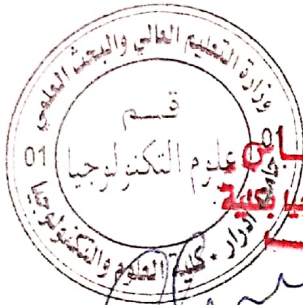 وزارة التعليم العالي والبحث العلمي
قسم
علوم التكنولوجيا
01
01
جامعة أدرار
كلية العلوم والتكنولوجيا